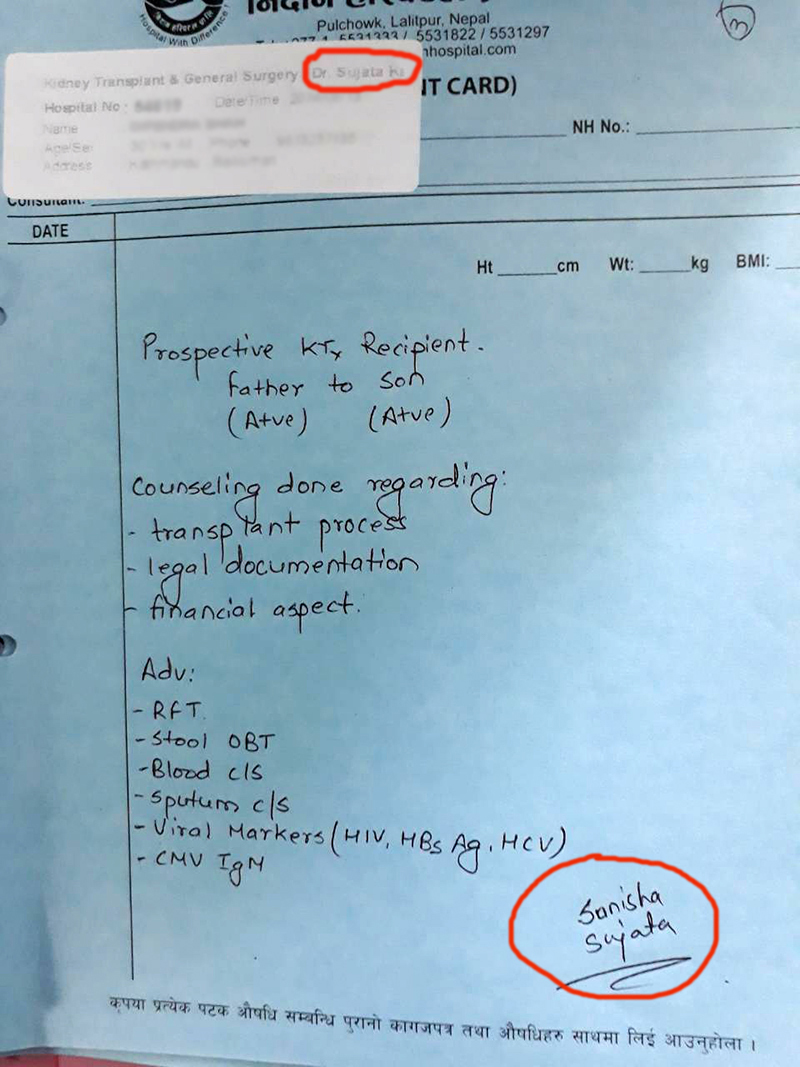 Hospital With Difference!
Pulchowk, Lalitpur, Nepal
5531333 / 5531822 / 5531297
hospital.com
3
Kidney Transplant & General Surgery Dr. Sujata
Hospital No : Date/Time
Name
Age/Sex Phone
Address
NT CARD)
NH No.:
Consultant:
DATE
Ht ______cm Wt: _____kg BMI:
Prospective KTx Recipient.
father to son
(A+ve) (A+ve)
Counseling done regarding:
- transplant process
- legal documentation
- financial aspect.
Adv:
- RFT.
- Stool OBT
- Blood c/s
- Sputum c/s
- Viral Markers (HIV, HBs Ag, HCV)
- CMV IgM
Sanisha
Sujata
कृपया प्रत्येक पटक औषधि सम्बन्धि पुरानो कागजपत्र तथा औषधिहरु साथमा लिई आउनुहोला ।